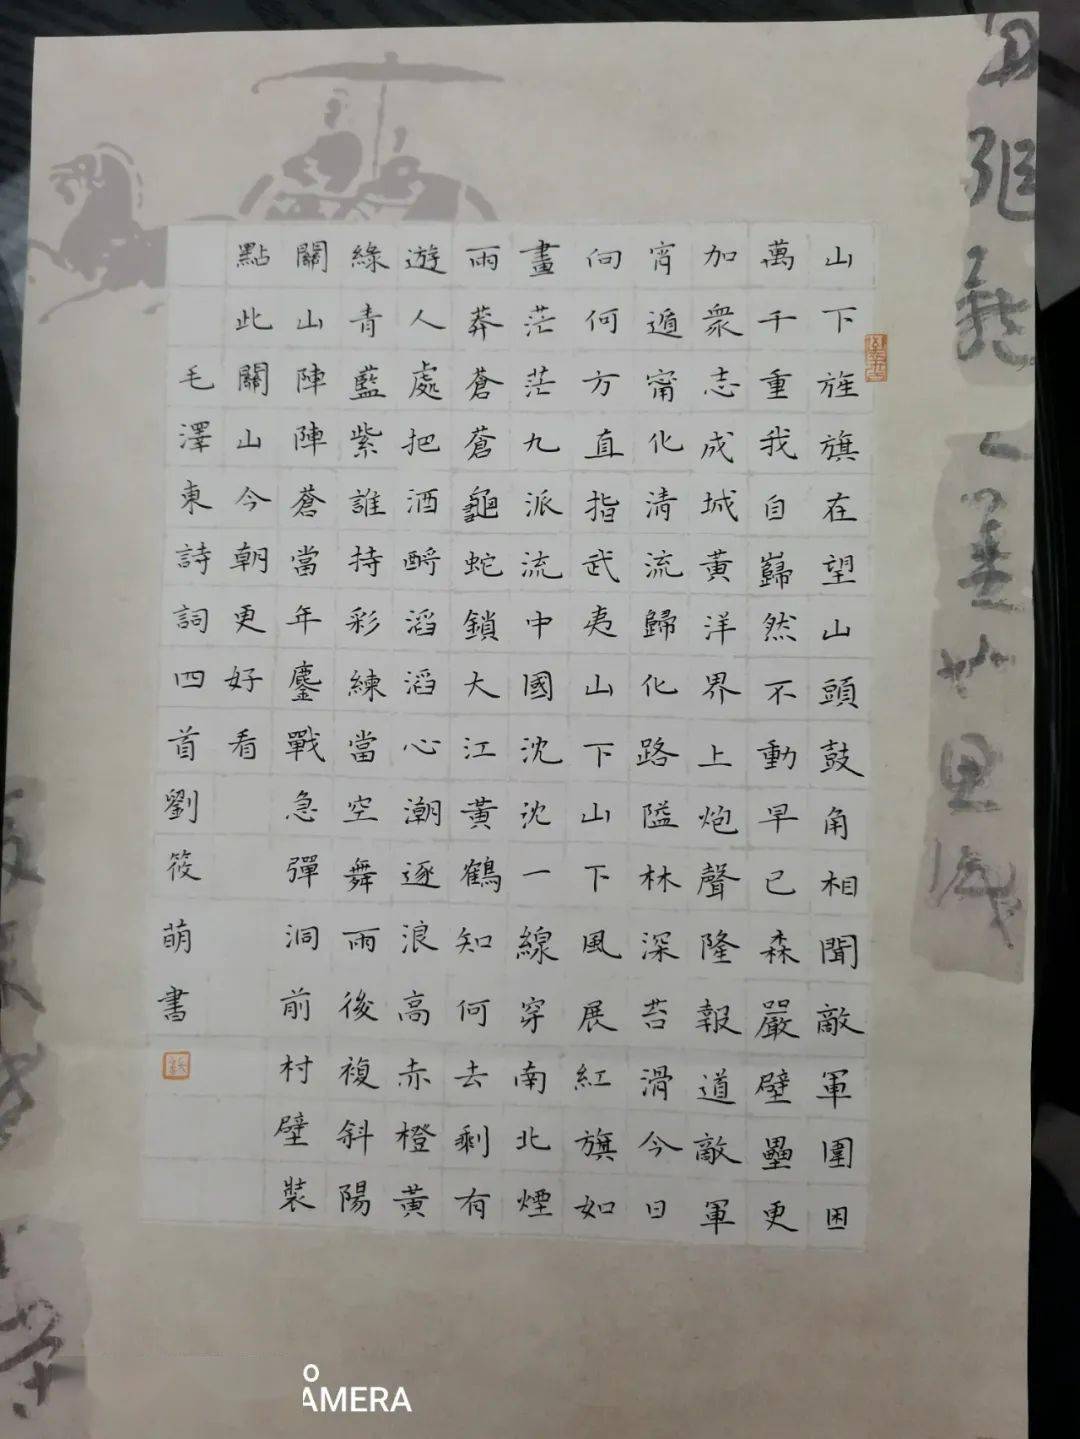 山下旌旗在望山頭鼓角相聞敵軍圍困
萬千重我自巋然不動早已森嚴壁壘更
加衆志成城黃洋界上炮聲隆報道敵軍
宵遁甯化清流歸化路隘林深苔滑今日
向何方直指武夷山下山下風展紅旗如
畫茫茫九派流中國沈沈一線穿南北煙
雨莽蒼蒼龜蛇鎖大江黃鶴知何去剩有
遊人處把酒酹滔滔心潮逐浪高赤橙黃
綠青藍紫誰持彩練當空舞雨後複斜陽
關山陣陣蒼當年鏖戰急彈洞前村壁裝
點此關山今朝更好看
毛澤東詩詞四首劉筱萌書
AMERA